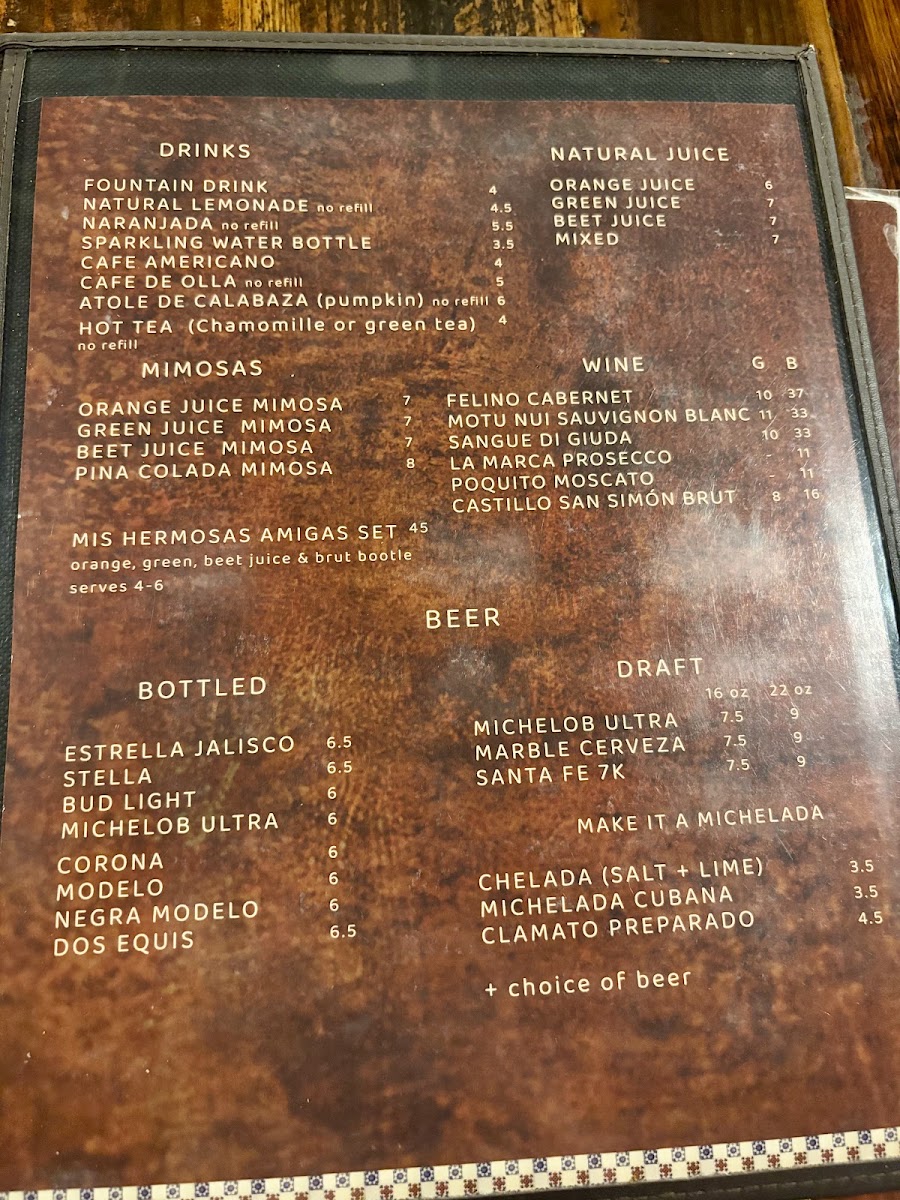 DRINKS
FOUNTAIN DRINK 4
NATURAL LEMONADE no refill 4.5
NARANJADA no refill 5.5
SPARKLING WATER BOTTLE 3.5
CAFE AMERICANO 4
CAFE DE OLLA no refill 5
ATOLE DE CALABAZA (pumpkin) no refill 6
HOT TEA (Chamomille or green tea) 4
no refill
NATURAL JUICE
ORANGE JUICE 6
GREEN JUICE 7
BEET JUICE 7
MIXED 7
MIMOSAS
ORANGE JUICE MIMOSA 7
GREEN JUICE MIMOSA 7
BEET JUICE MIMOSA 7
PINA COLADA MIMOSA 8
MIS HERMOSAS AMIGAS SET 45
orange, green, beet juice & brut bootle
serves 4-6
WINE G B
FELINO CABERNET 10 37
MOTU NUI SAUVIGNON BLANC 11 33
SANGUE DI GIUDA 10 33
LA MARCA PROSECCO - 11
POQUITO MOSCATO - 11
CASTILLO SAN SIMÓN BRUT 8 16
BEER
BOTTLED
ESTRELLA JALISCO 6.5
STELLA 6.5
BUD LIGHT 6
MICHELOB ULTRA 6
CORONA 6
MODELO 6
NEGRA MODELO 6
DOS EQUIS 6.5
DRAFT
16 oz 22 oz
MICHELOB ULTRA 7.5 9
MARBLE CERVEZA 7.5 9
SANTA FE 7K 7.5 9
MAKE IT A MICHELADA
CHELADA (SALT + LIME) 3.5
MICHELADA CUBANA 3.5
CLAMATO PREPARADO 4.5
+ choice of beer